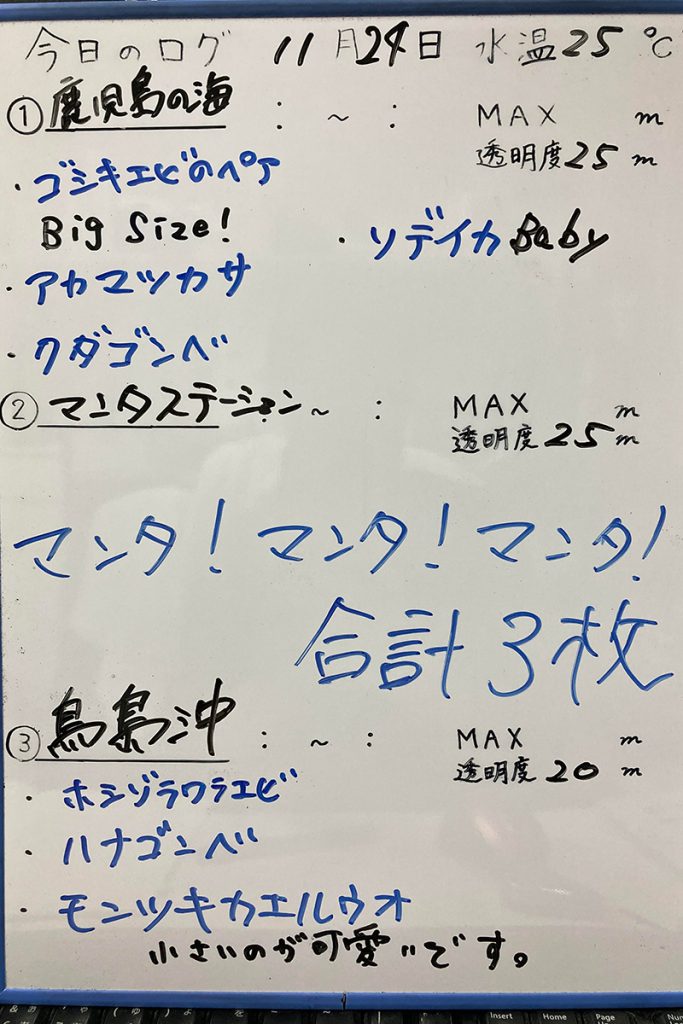 今日のログ 11月24日 水温25℃
①鹿児島の海 : ~ : MAX m
透明度25m
・ゴシキエビのペア
Big Size!
・ソデイカBaby
・アカマツカサ
・クダゴンベ
②マンタステーション~ : MAX m
透明度25m
マンタ!マンタ!マンタ!
合計3枚
③鳥島沖 : ~ : MAX m
透明度20m
・ホシゾラワラエビ
・ハナゴンベ
・モンツキカエルウオ
小さいのが可愛いです。
Insert Home Page